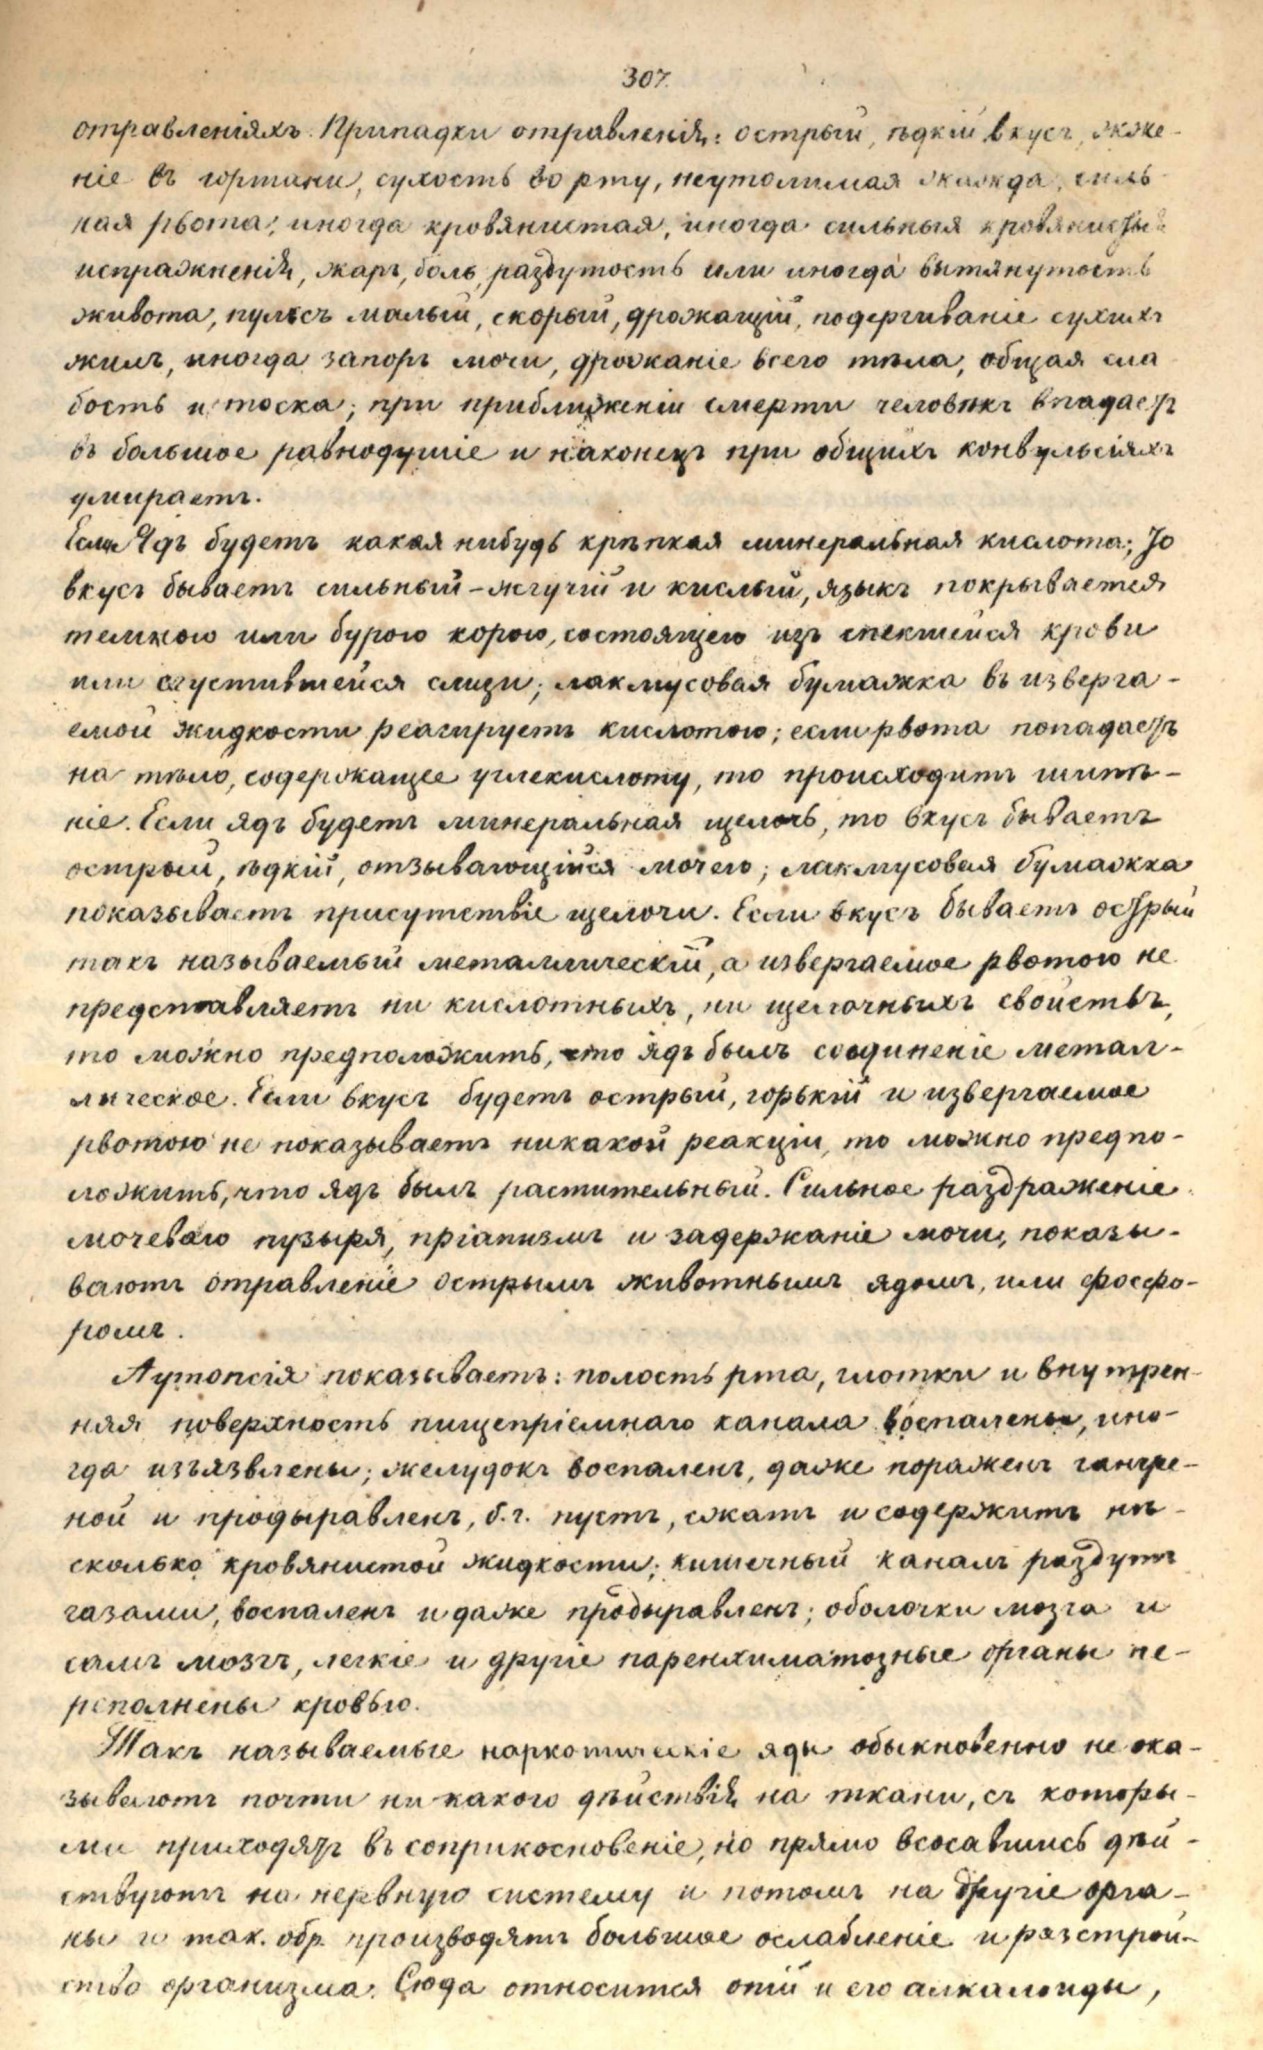 307.
отравленіяхъ. Припадки отравленія: острый, ѣдкій вкусъ, жже-
ніе въ гортани, сухость во рту, неутолимая жажда, силь-
ная рвота, иногда кровянистая, иногда сильныя кровянистыя
испражненія, жаръ, боль, раздутость или иногда вытянутость
живота, пульсъ малый, скорый, дрожащій, подергиваніе сухихъ
жилъ, иногда запоръ мочи, дрожаніе всего тѣла, общая сла
бость и тоска; при приближеніи смерти человѣкъ впадаетъ
въ большое равнодушіе и наконецъ при общихъ конвульсіяхъ
умираетъ.
Если Ядъ будетъ какая нибудь крѣпкая минеральная кислота; То
вкусъ бываетъ сильный-жгучій и кислый, языкъ покрывается
темною или бурою корою, состоящею изъ спекшейся крови
или сгустившейся слизи; лакмусовая бумажка въ изверга-
емой жидкости реагируетъ кислотою; если рвота попадаетъ
на тѣло, содержащее углекислоту, то происходитъ шипѣ-
ніе. Если ядъ будетъ минеральная щелочь, то вкусъ бываетъ
острый, ѣдкій, отзывающійся мочею; лакмусовая бумажка
показываетъ присутствіе щелочи. Если вкусъ бываетъ острый
такъ называемый металлическій, а извергаемое рвотою не
представляетъ ни кислотныхъ, ни щелочныхъ свойствъ,
то можно предположить, что ядъ былъ соединеніе метал-
лическое. Если вкусъ будетъ острый, горькій и извергаемое
рвотою не показываетъ никакой реакціи, то можно предпо-
ложить, что ядъ былъ растительный. Сильное раздраженіе
мочеваго пузыря, пріапизмъ и задержаніе мочи, показы-
ваютъ отравленіе острымъ животнымъ ядомъ, или фосфо-
ромъ.
Аутопсія показываетъ: полость рта, глотки и внутрен-
няя поверхность пищепріемнаго канала воспалены, ино-
гда изъязвлены; желудокъ воспаленъ, даже пораженъ гангре-
ной и продыравленъ, б. ч. пустъ, сжатъ и содержитъ нѣ-
сколько кровянистой жидкости; кишечный каналъ раздутъ
газами, воспаленъ и даже продыравленъ; оболочки мозга и
самъ мозгъ, легкіе и другіе паренхиматозные органы пе-
реполнены кровью.
Такъ называемые наркотическіе яды обыкновенно не ока-
зываютъ почти ни какого дѣйствія на ткани, съ которы-
ми приходятъ въ соприкосновеніе, но прямо всосавшись дѣй-
ствуютъ на нервную систему и потомъ на другіе орга-
ны и так. обр. производятъ большое ослабленіе и разстрой-
ство организма. Сюда относится опій и его алкалоиды,